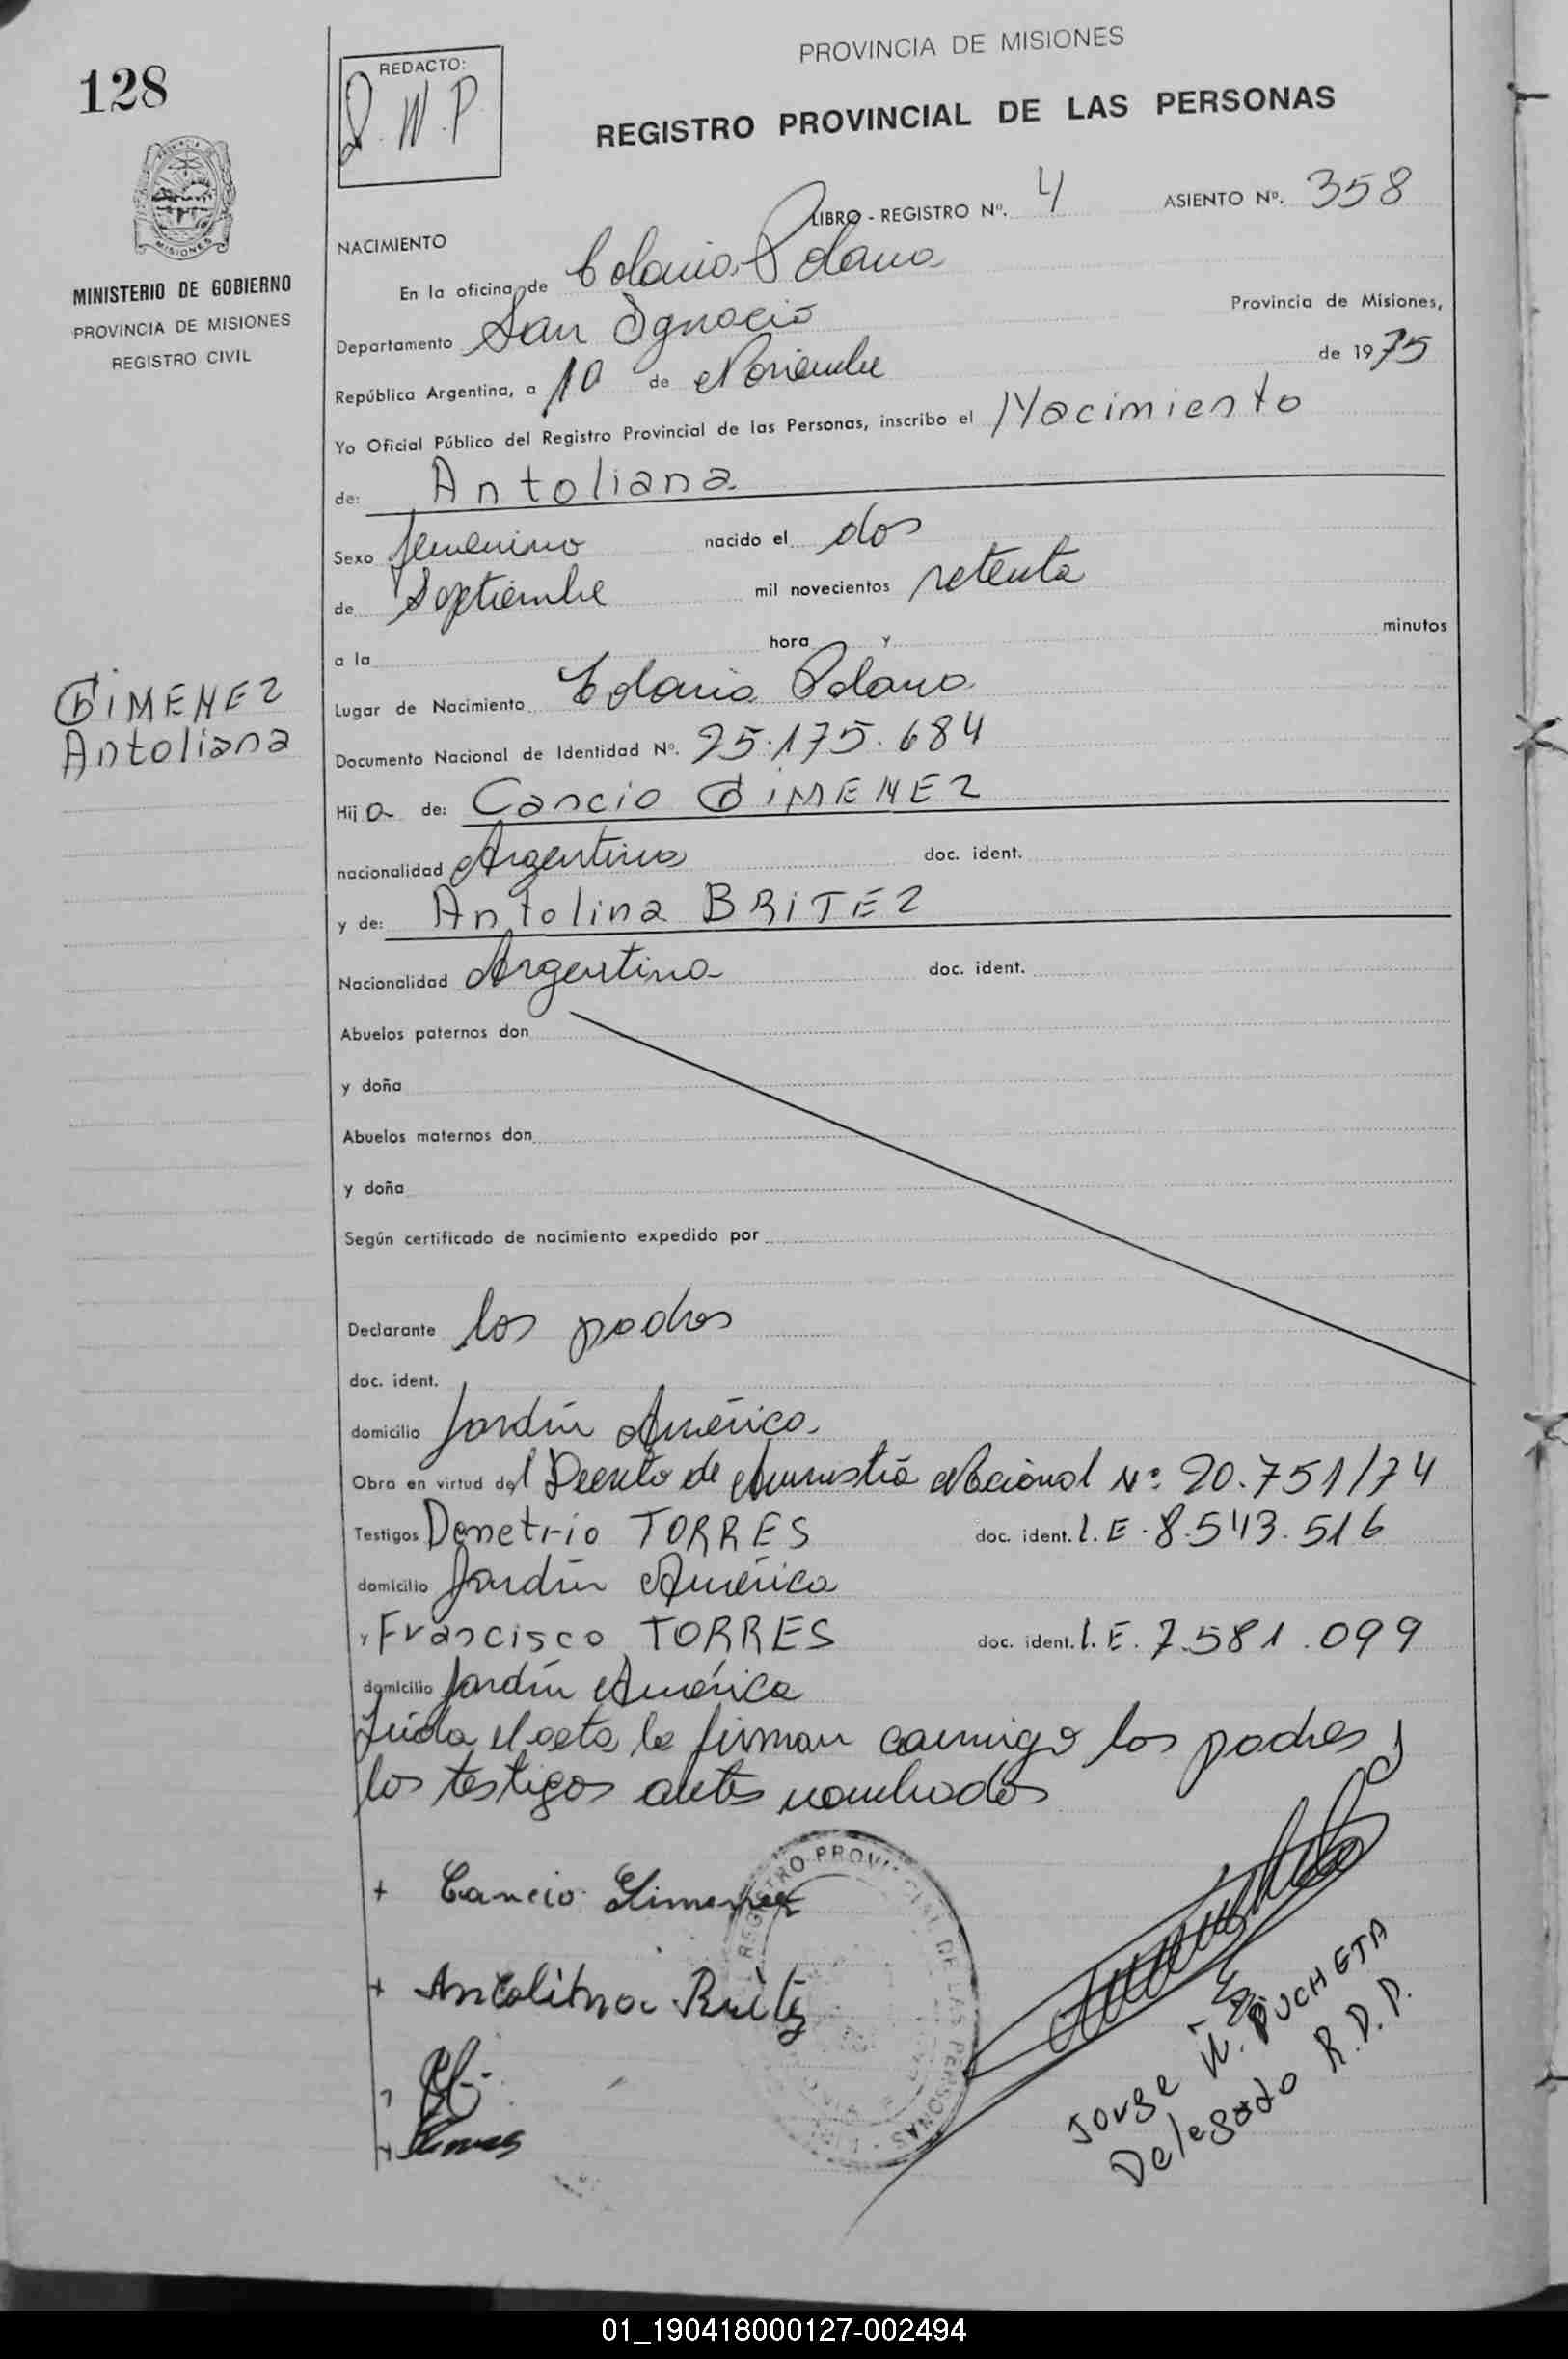 128
REDACTO:
J.W.P.
PROVINCIA DE MISIONES
REGISTRO PROVINCIAL DE LAS PERSONAS
MISIONES
MINISTERIO DE GOBIERNO
PROVINCIA DE MISIONES
REGISTRO CIVIL
LIBRO - REGISTRO Nº. 4 ASIENTO Nº. 358
NACIMIENTO
En la oficina de Colonia Polana
Departamento San Ignacio Provincia de Misiones,
República Argentina, a 10 de Noviembre de 1975
Yo Oficial Público del Registro Provincial de las Personas, inscribo el Nacimiento
de: Antoliana
Sexo femenino nacido el dos
de Septiembre mil novecientos setenta
a la hora y minutos
GIMENEZ
Antoliana
Lugar de Nacimiento Colonia Polana
Documento Nacional de Identidad Nº. 25.175.684
Hija de: Cancio GIMENEZ
nacionalidad Argentina doc. ident.
y de: Antolina BRITEZ
Nacionalidad Argentina doc. ident.
Abuelos paternos don
y doña
Abuelos maternos don
y doña
Según certificado de nacimiento expedido por
Declarante los padres
doc. ident.
domicilio Jardín América
Obra en virtud del Decreto de Amnistía Nacional Nº 20.751/74
Testigos Demetrio TORRES doc. ident. L.E. 8.543.516
domicilio Jardín América
y Francisco TORRES doc. ident. L.E. 7.581.099
domicilio Jardín América
Leída el acta la firman conmigo los padres y
los testigos antes nombrados
+ Cancio Gimenez
+ Antolina Britez
REGISTRO PROVINCIAL DE LAS PERSONAS
Torres
JORGE W. PUCHETA
Delegado R.D.P.
01_190418000127-002494